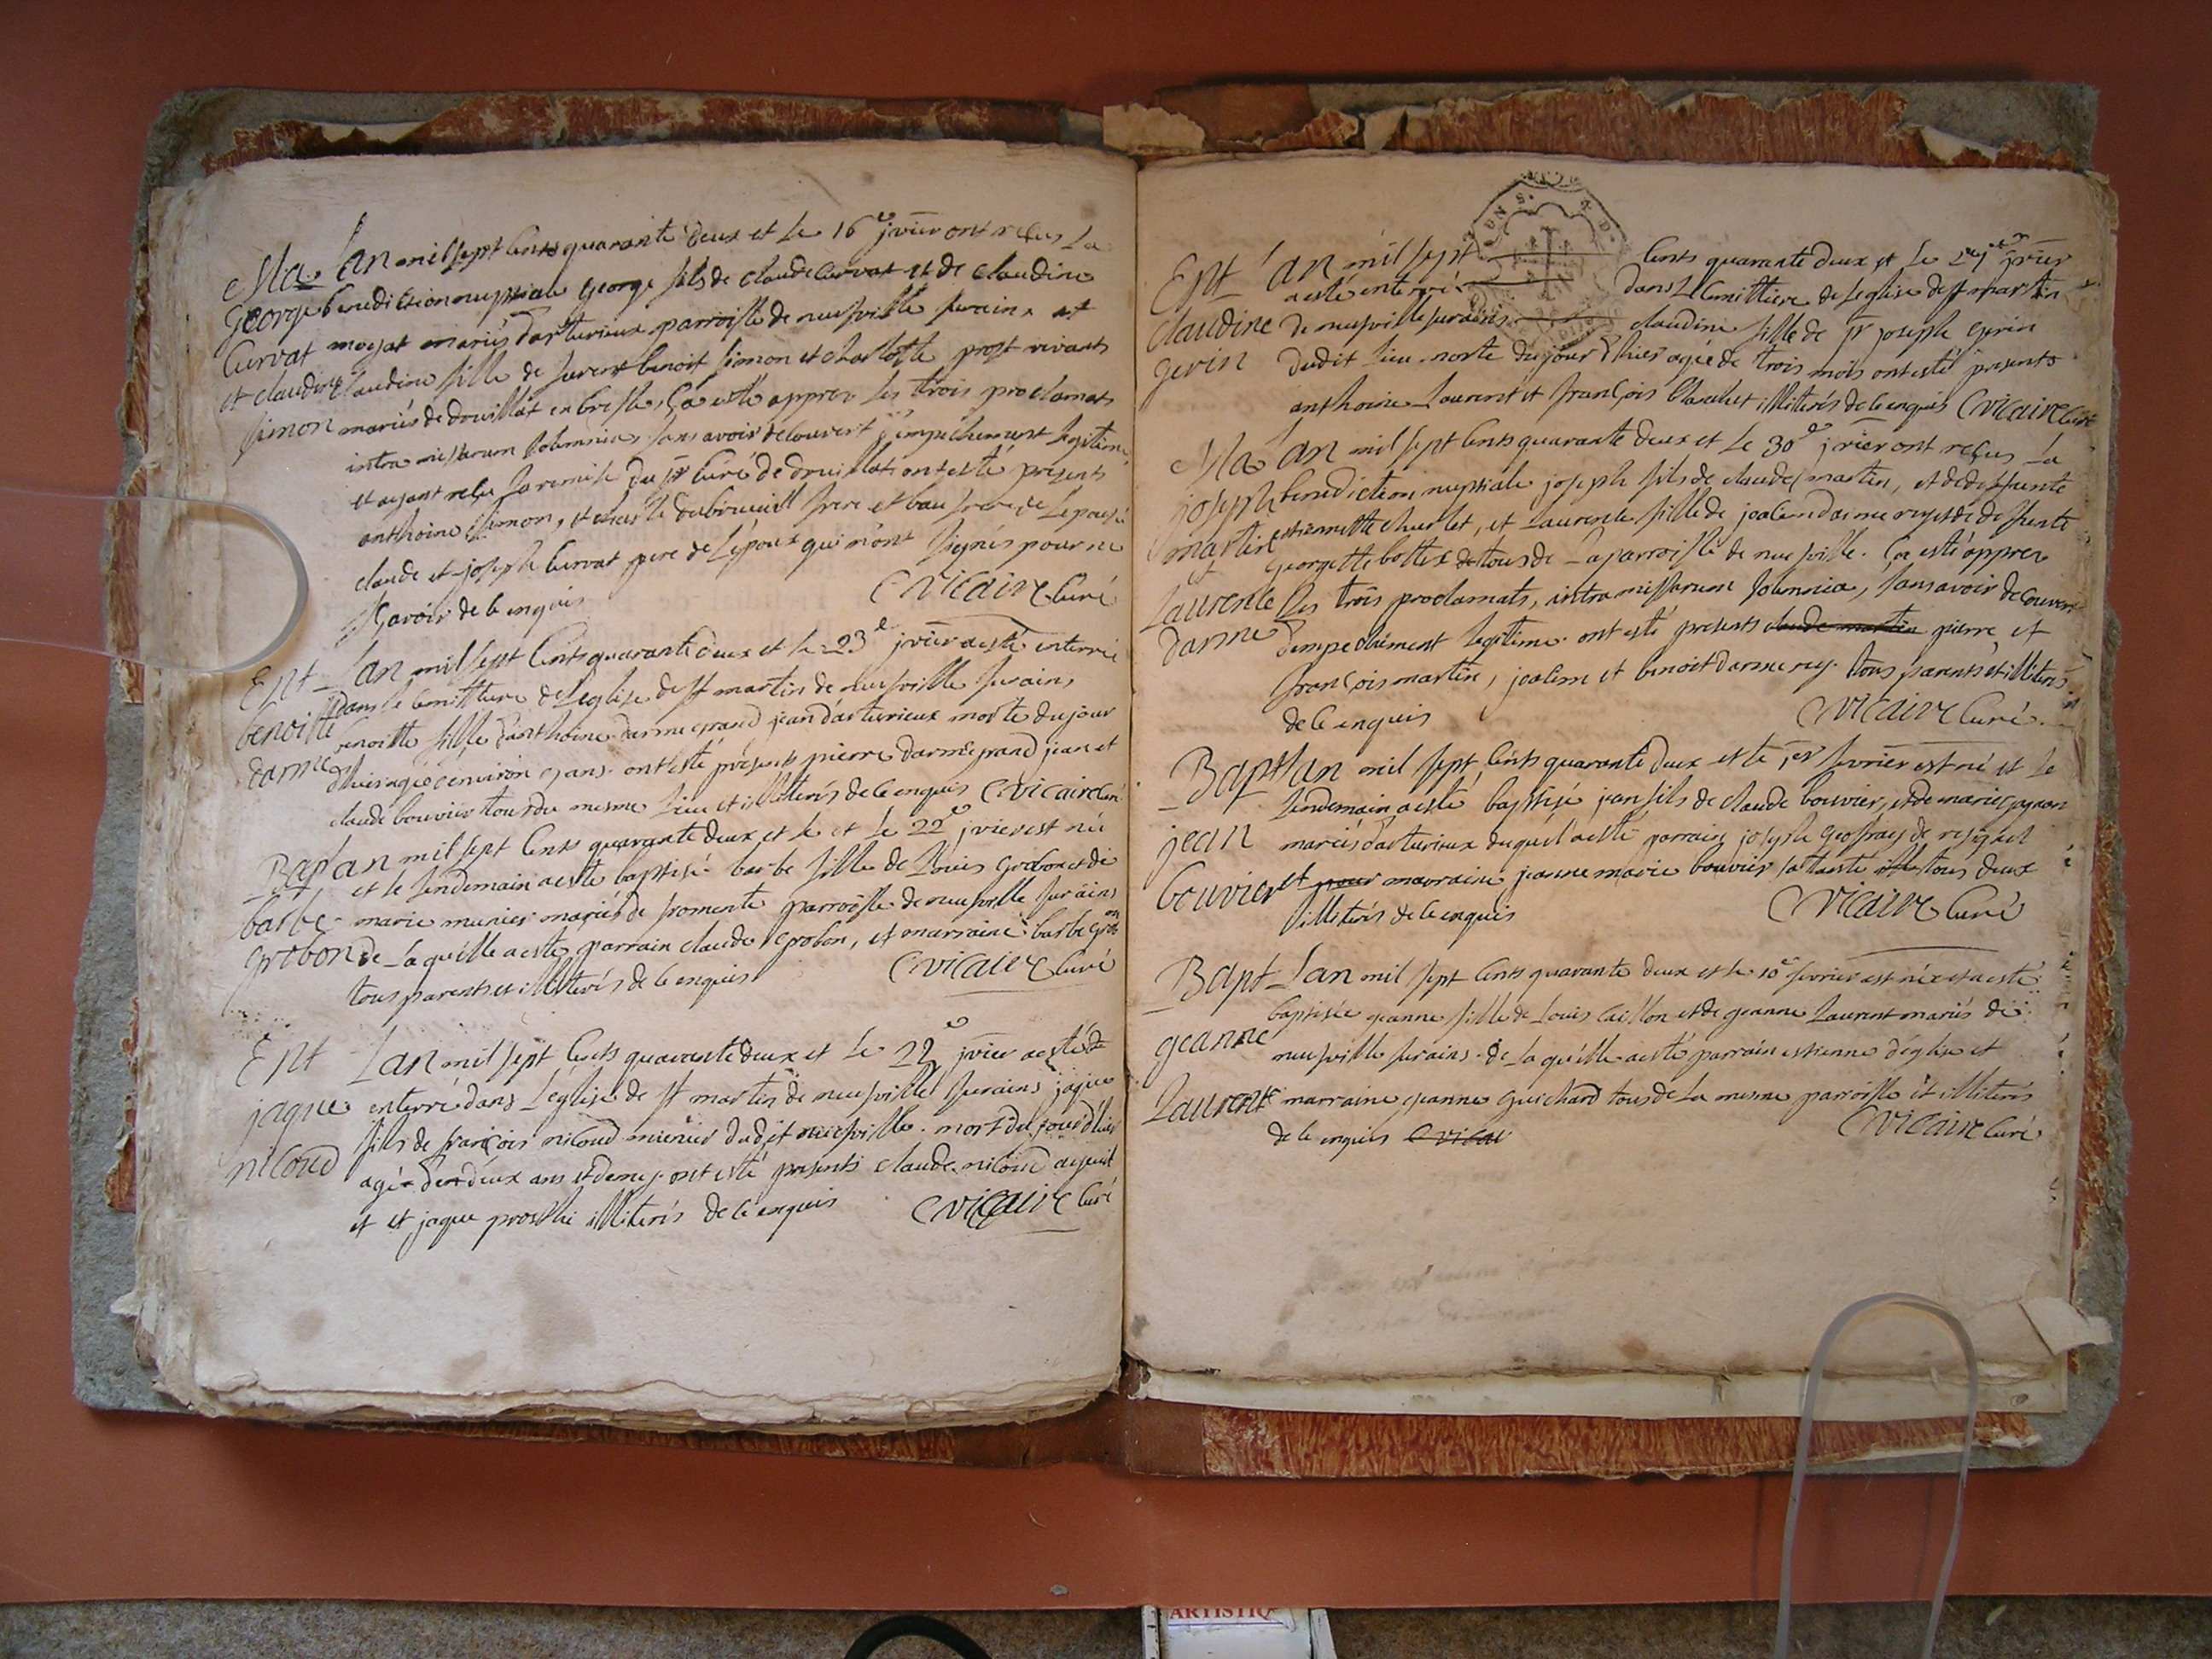 Ma. Lan mil sept cents quarante deux et le 16e jvier ont reçus La
George benediction nuptiale George fils de claude Curvat et de claudine
Curvat mariés parroisse de neufville surains et
et claudine claudine fille de benoit simon et charlotte vivants
simon mariés de en bresse, Ca esté apprez les trois proclamats
intra missarum solemnia sans avoir decouvert d'empechement legitime
et ayant reçu la remise du Sr Curé de druillat ont esté presents
anthoine simon, et frere et bau frere de Lepouse
claude et joseph Curvat pere de Lépoux qui n'ont signés pour ne
sçavoir de ce enquis
Vicaire Curé
Ent Lan mil sept Cents quarante deux et le 23e jvier a esté enterrée
benoitte dans le Cemittiere de Leglise de st martin de neufville surains
darme benoitte fille d'anthoine darme grand jean d'arturieux morte du jour
d'hier agée denviron ans. ont esté présents pierre darme grand jean et
claude bouvier tous du mesme Lieu et illiterés de ce enquis Vicaire Curé
Bapt Lan mil sept Cents quarante deux et le et Le 22e jvier est née
et le lendemain a esté baptisé barbe fille de Loüis grobon et de
barbe marie munier mariés de fromente parroisse de neufville surains
grobon de Laquelle a esté parrain claude grobon, et marraine barbe grobon
tous parents et illiterés de ce enquis
Vicaire Curé
Ent Lan mil sept Cents quarante deux et Le jvier a esté
jaque enterré dans Léglise de st martin de neufville surains jaque
nicoud fils de françois nicoud munier dudit neufville. mort du jour d'hier
agé de deux ans et demy. ont esté presents claude nicoud
et et jaque illiterés de ce enquis
Vicaire Curé
Ent Lan mil sept Cents quarante deux et Le jvier
a esté enterré dans Le Cemittiere de Leglise de st martin
claudine de neufville surains claudine fille de Sr joseph gerin
gerin dudit Lieu morte du jour d'hier agée de trois mois ont esté présents
anthoine Laurent et françois illiterés de ce enquis Vicaire Curé
Ma Lan mil sept Cents quarante deux et Le 30e jvier ont reçus La
joseph benediction nuptiale joseph fils de claude martin, et de deffunte
martin estiennette churlet, et Laurence fille de joachim darme rey et de deffunte
et georgette bottex tous de La parroisse de neufville. Ca esté apprez
Laurence Les trois proclamats, intra missarum solemnia, sans avoir decouvert
darme d'empechement legitime ont esté presents claude martin pierre et
françois martin, joachim et benoit darme rey. tous parents et illiterés
de ce enquis
Vicaire Curé.
Bapt Lan mil sept Cents quarante deux et le 1er fevrier est né et Le
Lendemain a esté baptisé jean fils de claude bouvier, et de marie
jean mariés d'arturieux duquel a esté parrain joseph geoffray de
bouvier et pour marraine jeanne marie bouvier sa tante tous deux
illiterés de ce enquis
Vicaire Curé
Bapt Lan mil sept Cents quarante deux et le 10e fevrier est née et a esté
baptisée jeanne fille de Louis caillon et de jeanne Laurent mariés de
geanne neufville surains. de Laquelle a esté parrain estienne déglise et
Laurent marraine jeanne guichard tous de La mesme parroisse et illiterés
de ce enquis
Vicaire Curé
ARTISTIQ